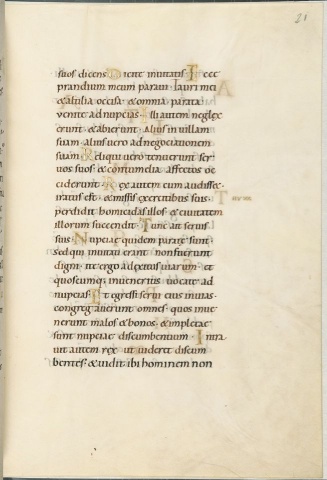 21
suos dicens Dicite inuitatis Ecce
prandium meum paraui tauri mei
& altilia occisa & omnia parata
uenite ad nuptias Illi autem neglex
erunt & abierunt alius in uillam
suam alius uero ad negociationem
suam Reliqui uero tenuerunt ser
uos suos & contumelia affectos oc
ciderunt Rex autem cum audiss&
iratus est & missis exercitibus suis
perdidit homicidas illos & ciuitatem
illorum succendit Tunc ait seruis
suis Nuptiae quidem paratae sunt
sed qui inuitati erant non fuerunt
digni ite ergo ad exitus uiarum et
quoscumq; inueneritis uocate ad
nuptias Et egressi serui eius in uias
congregauerunt omnes quos inue
nerunt malos & bonos & impletae
sunt nuptiae discumbentium Intra
uit autem rex ut uideret discum
bentes & uidit ibi hominem non